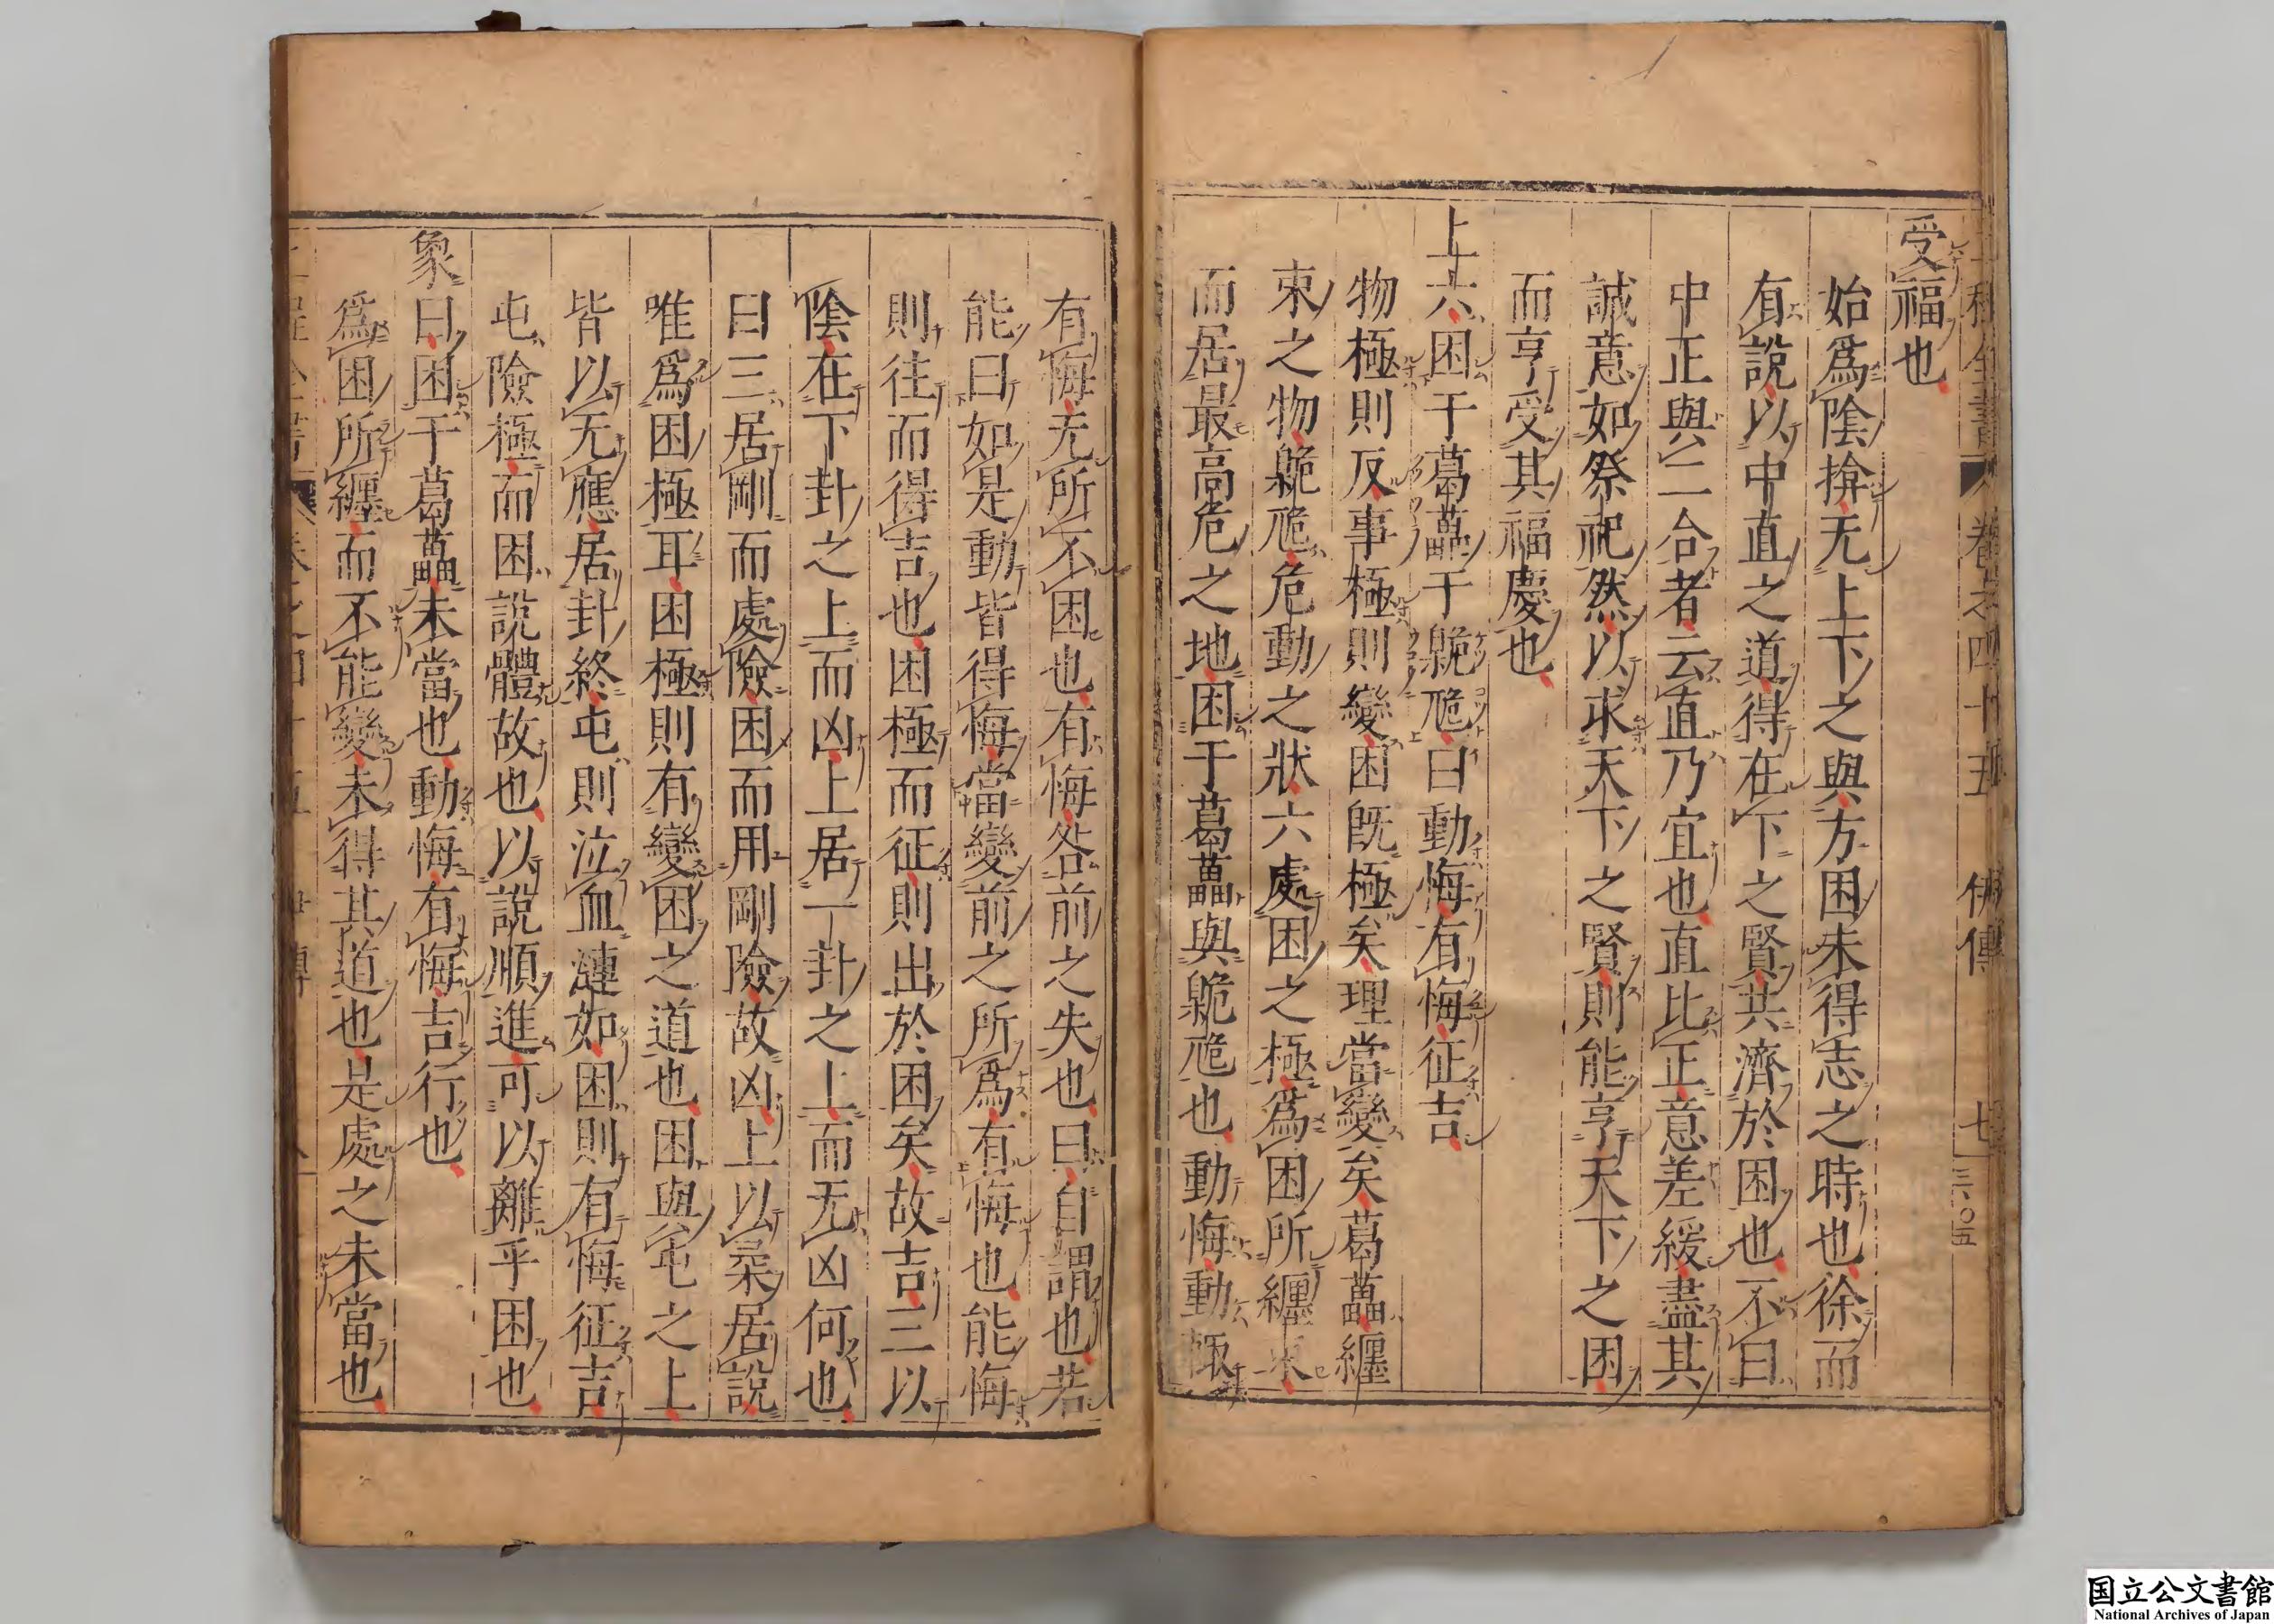 受福也
始爲陰揜无上下之與方困未得志之時也徐而
有說以中直之道得在下之賢共濟於困也不曰
中正與二合者云直乃宜也直比正意差緩盡其
誠意如祭祀然以求天下之賢則能亨天下之困
而亨受其福慶也
上六困于葛藟于臲卼曰動悔有悔征吉
物極則反事極則變困旣極矣理當變矣葛藟纏
束之物臲卼危動之狀六處困之極爲困所纏束
而居最高危之地困于葛藟與臲卼也動悔動輒
有悔无所不困也有悔咎前之失也曰自謂也若
能曰如是動皆得悔當變前之所爲有悔也能悔
則往而得吉也困極而征則出於困矣故吉三以
陰在下卦之上而凶上居一卦之上而无凶何也
曰三居剛而處險困而用剛險故凶上以柔居說
唯爲困極耳困極則有變困之道也困與屯之上
皆以无應居卦終屯則泣血漣如困則有悔征吉
屯險極而困說體故也以說順進可以離乎困也
象曰困于葛藟未當也動悔有悔吉行也
爲困所纏而不能變未得其道也是處之未當也
卷之四十五 傳 七
国立公文書館
National Archives of Japan